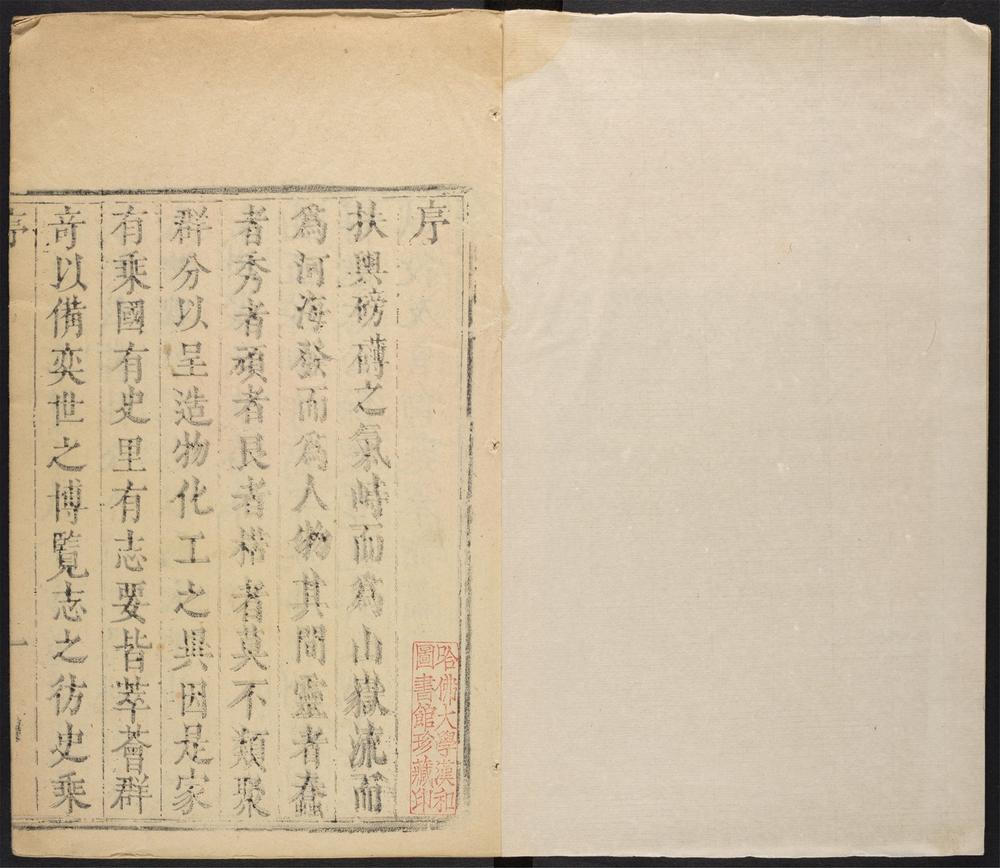 序
扶輿磅礴之氣峙而爲山嶽流而
爲河海發而爲人物其間靈者蠢
者秀者頑者良者楛者莫不類聚
群分以呈造物化工之異因是家
有乘國有史里有志要皆萃薈群
奇以備奕世之博覽志之彷史乘
序
一
哈佛大學漢和
圖書館珍藏印